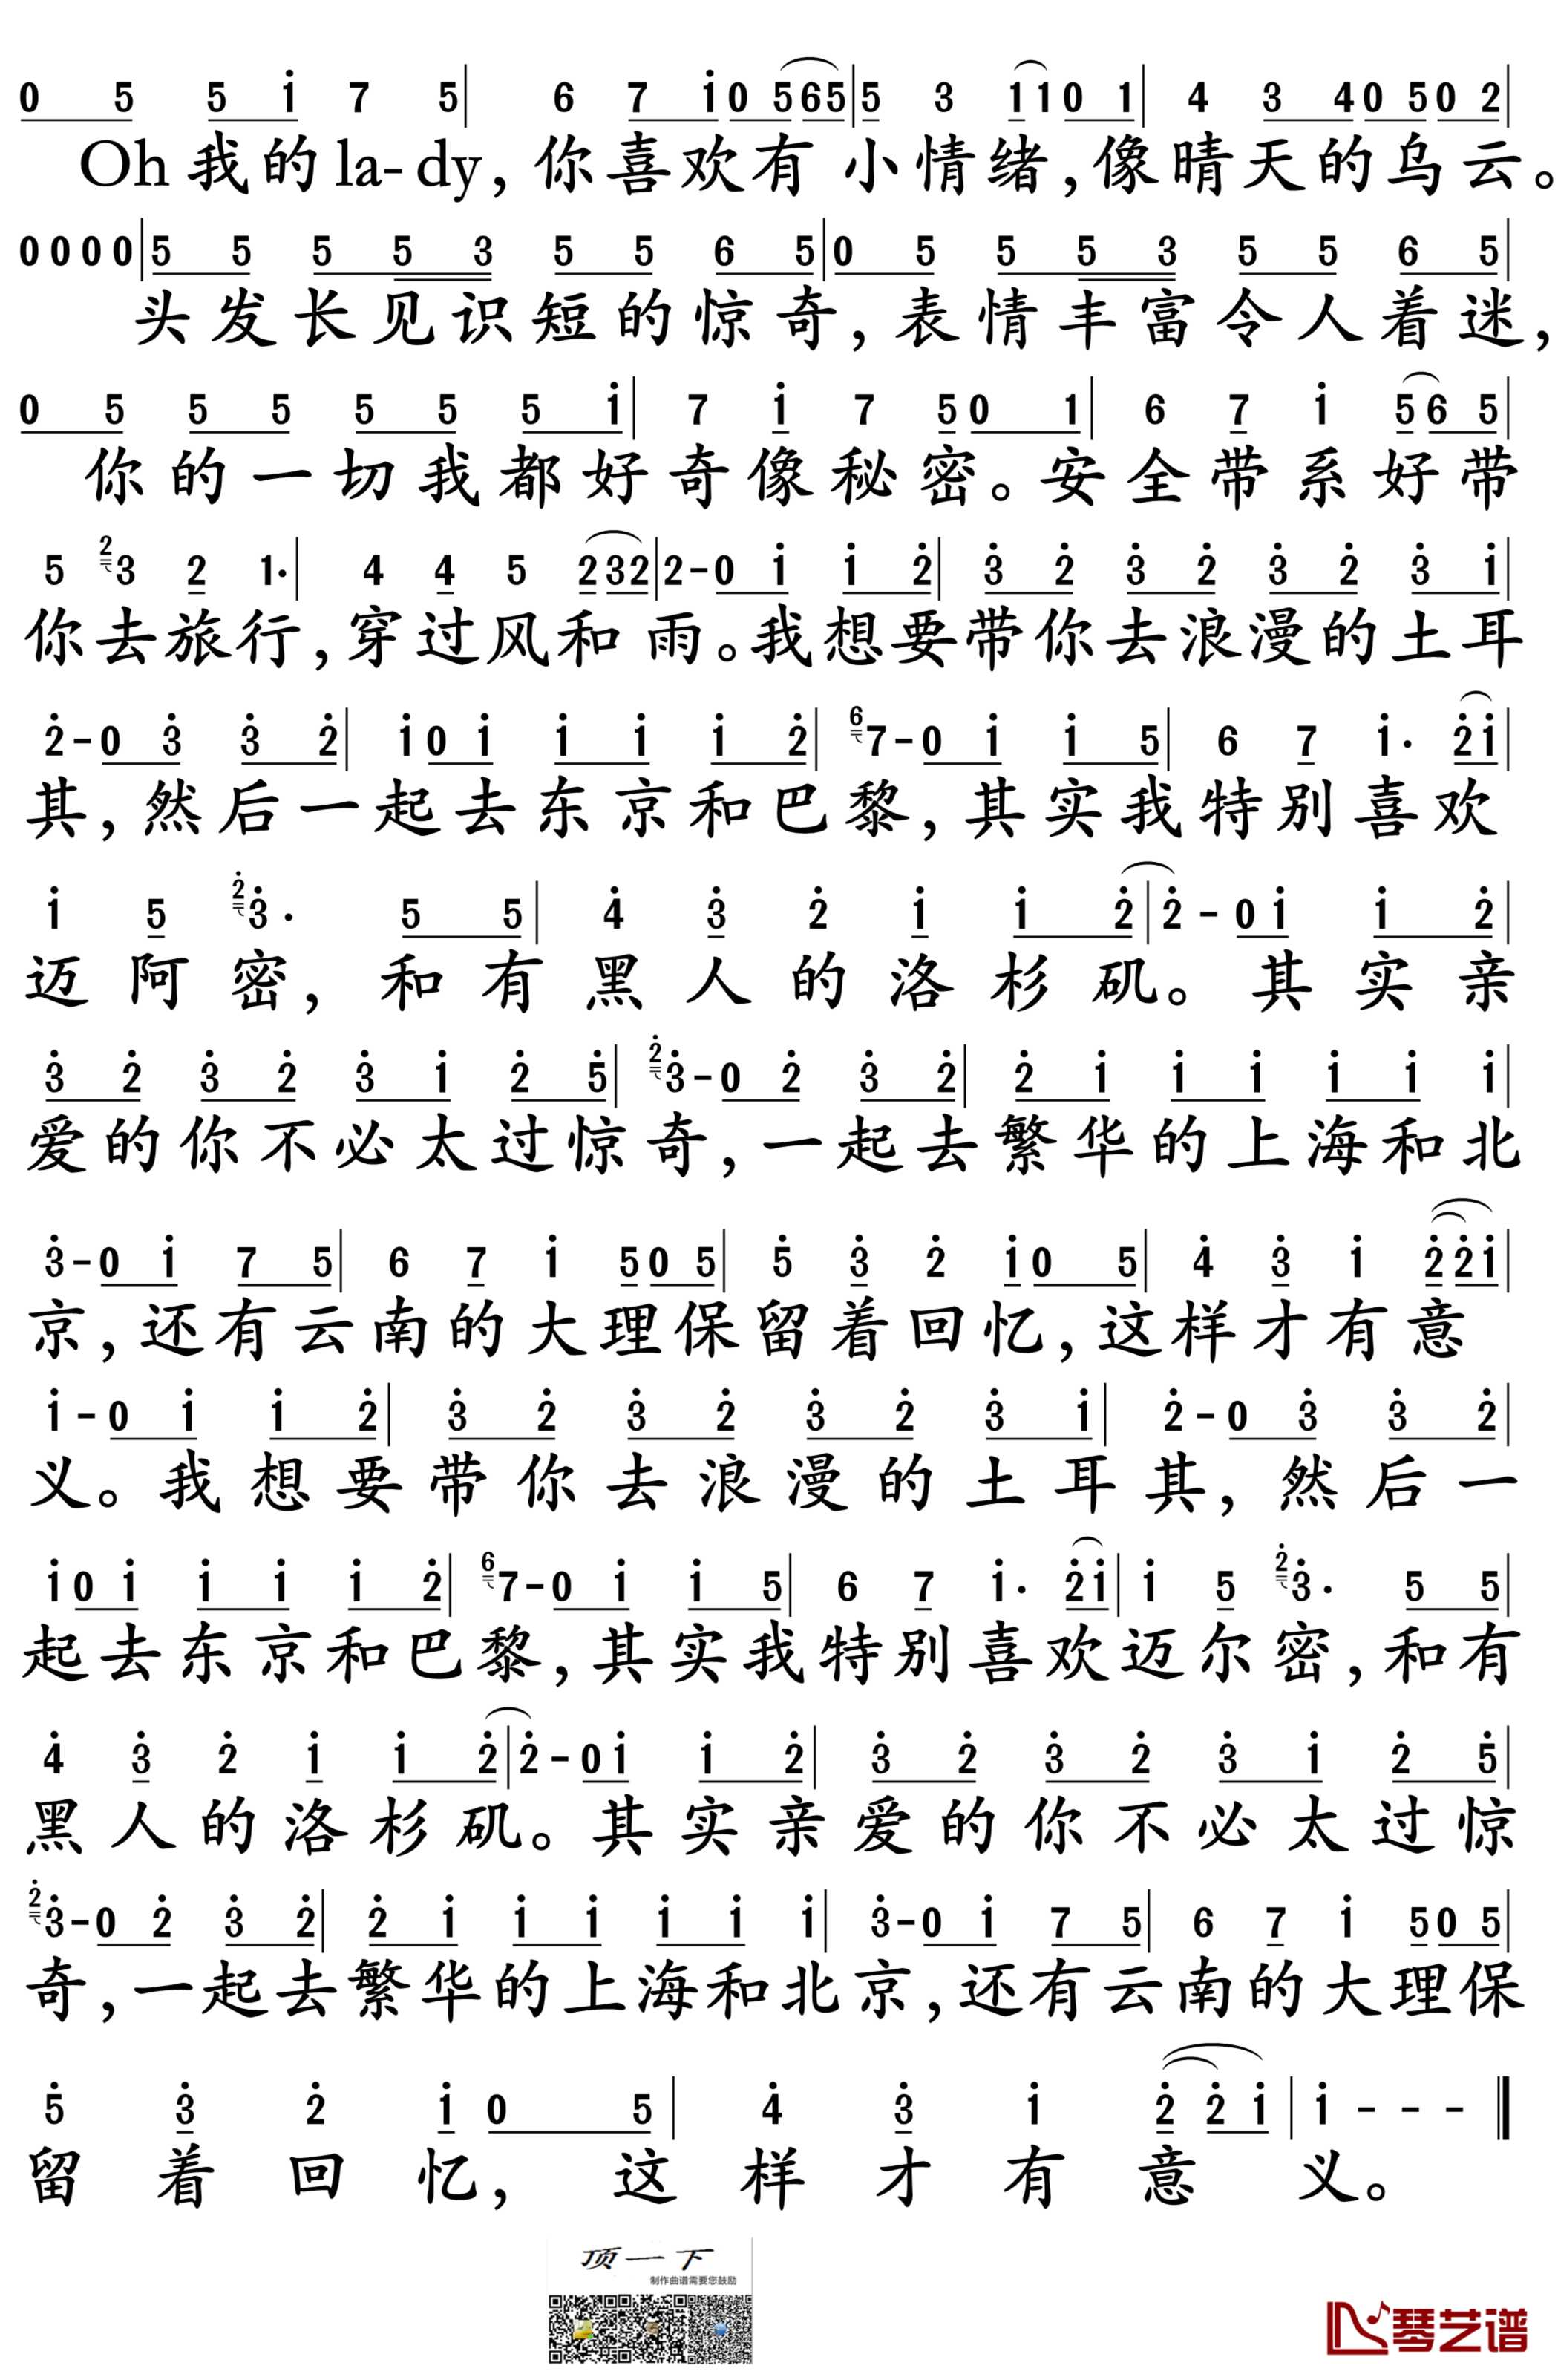 0 5 5 i 7 5| 6 7 i 0 5 6 5|5 3 1 1 0 1| 4 3 4 0 5 0 2|
Oh 我的 la- dy, 你喜欢有 小情绪,像晴天的乌云。
0 0 0 0|5 5 5 5 3 5 5 6 5|0 5 5 5 3 5 5 6 5|
头发长见识短的惊奇,表情丰富令人着迷,
0 5 5 5 5 5 5 i| 7 i 7 5 0 1| 6 7 i 5 6 5|
你的一切我都好奇像秘密。安全带系好带
5 2 3 2 1·| 4 4 5 2 3 2|2 - 0 i i 2| 3 2 3 2 3 2 3 i|
你去旅行,穿过风和雨。我想要带你去浪漫的土耳
2 - 0 3 3 2| i 0 i i i i 2| 6 7 - 0 i i 5| 6 7 i· 2 i|
其,然后一起去东京和巴黎,其实我特别喜欢
i 5 2 3· 5 5| 4 3 2 i i 2|2 - 0 i i 2|
迈阿密,和有黑人的洛杉矶。其实亲
3 2 3 2 3 i 2 5| 2 3 - 0 2 3 2| 2 i i i i i i|
爱的你不必太过惊奇,一起去繁华的上海和北
3 - 0 i 7 5| 6 7 i 5 0 5| 5 3 2 i 0 5| 4 3 i 2 2 i|
京,还有云南的大理保留着回忆,这样才有意
i - 0 i i 2| 3 2 3 2 3 2 3 i| 2 - 0 3 3 2|
义。我想要带你去浪漫的土耳其,然后一
i 0 i i i i 2| 6 7 - 0 i i 5| 6 7 i· 2 i| i 5 2 3· 5 5|
起去东京和巴黎,其实我特别喜欢迈尔密,和有
4 3 2 i i 2|2 - 0 i i 2| 3 2 3 2 3 i 2 5|
黑人的洛杉矶。其实亲爱的你不必太过惊
2 3 - 0 2 3 2| 2 i i i i i i| 3 - 0 i 7 5| 6 7 i 5 0 5|
奇,一起去繁华的上海和北京,还有云南的大理保
5 3 2 i 0 5| 4 3 i 2 2 i| i - - - ‖
留着回忆,这样才有意义。
顶一下
制作曲谱需要您鼓励
琴艺谱